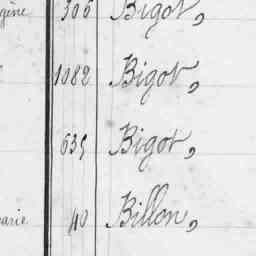 gène 306 Bigot,
1082 Bigot,
635 Bigot,
marie 40 Billon,